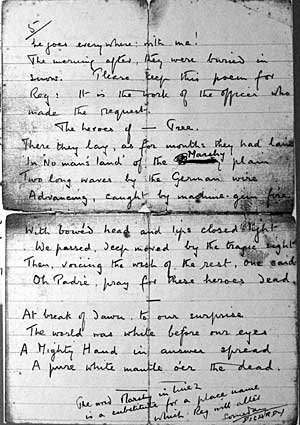 5/
he goes everywhere with me!
The morning after, they were buried in
snow. Please keep this poem for
Reg: It is the work of the officer who
made the request.
The heroes of — Tree.
There they lay, as for months they had lain
In 'No man's land' of the Marshy plain
Two long waves by the German wire
Advancing, caught by machine-gun fire
With bowed head and lips closed tight
We passed, deep moved by the tragic sight
Then, voicing the wish of the rest, one said
Oh Padré, pray for these heroes dead.
At break of Dawn, to our surprise
The world was white before our eyes
A Mighty Hand in answer spread
A pure white mantle o'er the dead.
The word Marshy in line 2
is a substitute for a place name
which Reg will allot
someday
PICARDY